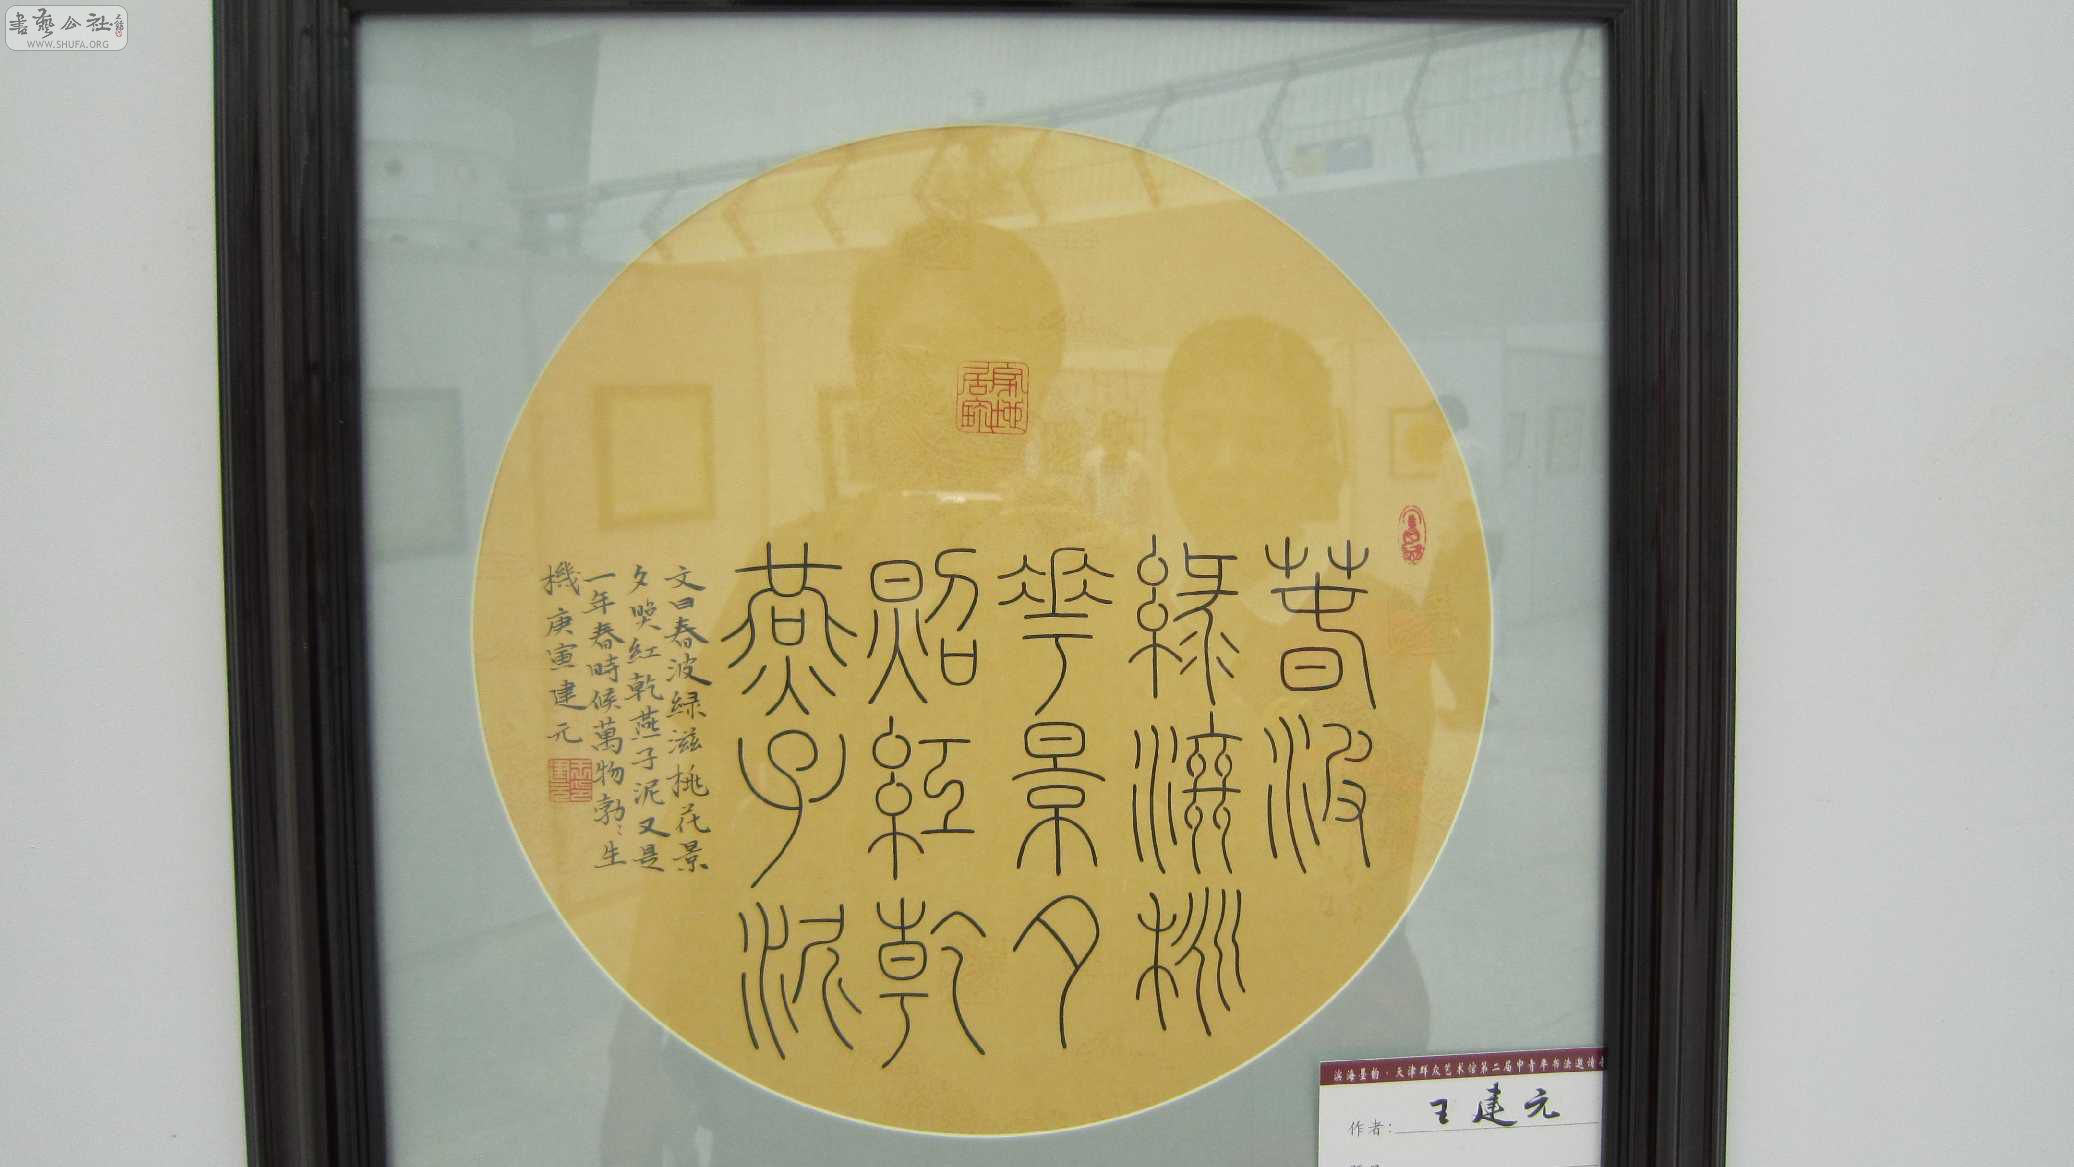 書藝公社
WWW.SHUFA.ORG
春波
綠滋桃
華景夕
照紅乾
燕子泥
文曰春波緑滋桃花景
夕紅乾燕子泥又是
一年春時候萬物勃〻生
機庚寅建元
滨海墨韵·天津群众艺术馆第二届中青年书法邀请
作者：王建元